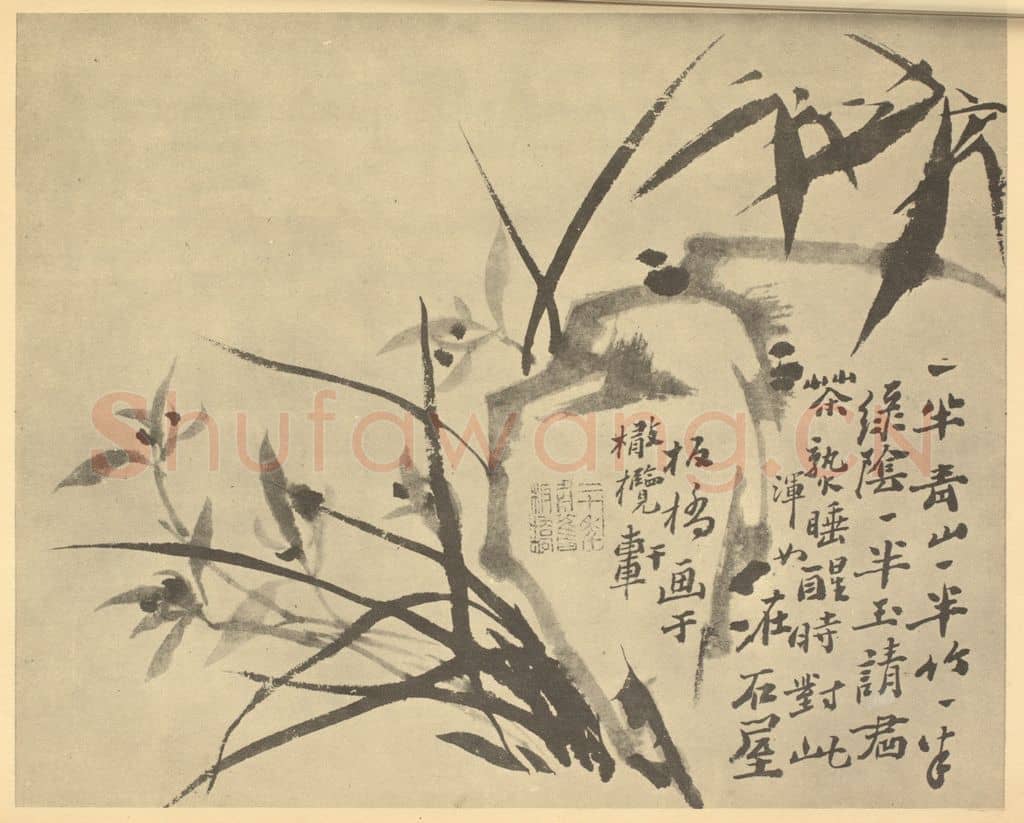 一半青山一半竹一半
綠陰一半玉請君
茶熟睡醒時對此
渾如在石屋
板橋画于
橄欖軒
Shufawang.CN